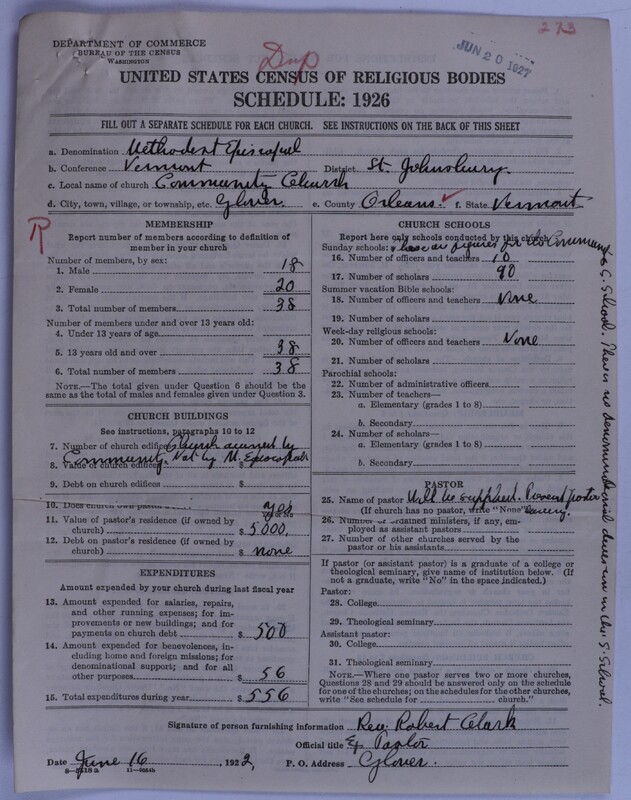 273
DEPARTMENT OF COMMERCE
BUREAU OF THE CENSUS
WASHINGTON
Dup
JUN 20 1927
UNITED STATES CENSUS OF RELIGIOUS BODIES
SCHEDULE: 1926
FILL OUT A SEPARATE SCHEDULE FOR EACH CHURCH. SEE INSTRUCTIONS ON THE BACK OF THIS SHEET
a. Denomination Methodist Episcopal
b. Conference Vermont District St. Johnsbury.
c. Local name of church Community Church
d. City, town, village, or township, etc. Glover. e. County Orleans. ✓ f. State Vermont
R
MEMBERSHIP
Report number of members according to definition of member in your church
Number of members, by sex:
1. Male 18
2. Female 20
3. Total number of members 38
Number of members under and over 13 years old:
4. Under 13 years of age
5. 13 years old and over 38
6. Total number of members 38
NOTE.—The total given under Question 6 should be
the same as the total of males and females given under Question 3.
CHURCH BUILDINGS
See instructions, paragraphs 10 to 12
7. Number of church edifices Church owned by
Community. Not by M. Episcopals
8. Value of church edifices
9. Debt on church edifices $
10. Does church own pastor's yes
11. Value of pastor's residence (if owned by
church) $ 5000.
12. Debt on pastor's residence (if owned by
church) $ none
EXPENDITURES
Amount expended by your church during last fiscal year
13. Amount expended for salaries, repairs,
and other running expenses; for im-
provements or new buildings; and for
payments on church debt $ 500
14. Amount expended for benevolences, in-
cluding home and foreign missions; for
denominational support; and for all
other purposes $ 56
15. Total expenditures during year $ 556
CHURCH SCHOOLS
Report here only schools conducted by this church
Sunday schools: figures for the Community
S. School. There is no denominational S. School.
16. Number of officers and teachers 10
17. Number of scholars 90
Summer vacation Bible schools:
18. Number of officers and teachers None
19. Number of scholars
Week-day religious schools:
20. Number of officers and teachers None
21. Number of scholars
Parochial schools:
22. Number of administrative officers
23. Number of teachers—
a. Elementary (grades 1 to 8)
b. Secondary
24. Number of scholars—
a. Elementary (grades 1 to 8)
b. Secondary
PASTOR
25. Name of pastor Will be supplied. Present pastor
(If church has no pastor, write "None") leaving.
26. Number of ordained ministers, if any, em-
ployed as assistant pastors
27. Number of other churches served by the
pastor or his assistants
If pastor (or assistant pastor) is a graduate of a college or
theological seminary, give name of institution below. (If
not a graduate, write "No" in the space indicated.)
Pastor:
28. College
29. Theological seminary
Assistant pastor:
30. College
31. Theological seminary
NOTE.—Where one pastor serves two or more churches,
Questions 28 and 29 should be answered only on the schedule
for one of the churches; on the schedules for the other churches,
write "See schedule for church."
Signature of person furnishing information Rev. Robert Clark
Official title Ex Pastor
Date June 16, 1922, P. O. Address Glover.